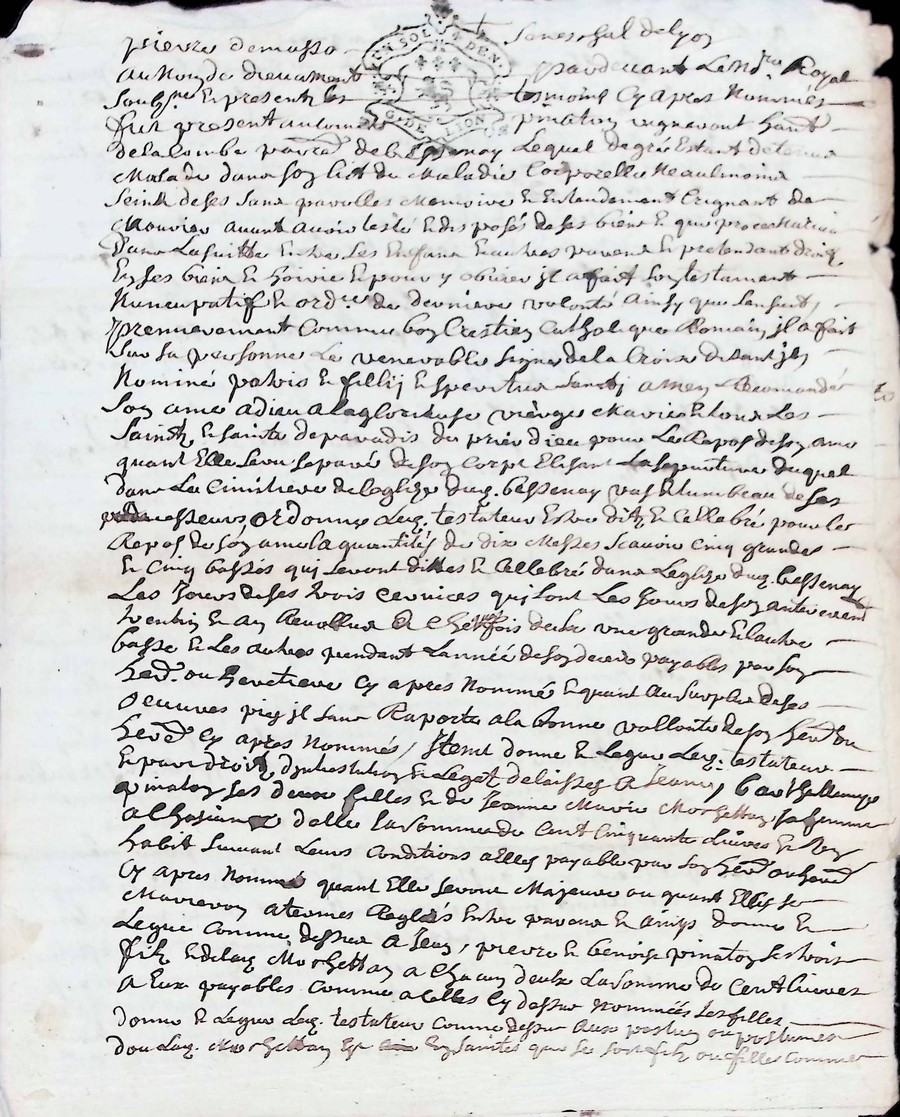 pierre demasso
Seneschal de lyon
au Nom de dieu amant pardevant Le No.re Royal
soubs.ne & presents les tesmoins Cy apres Nommés
fut present pinaton vigneront hant
de la Combe parr.e de bessenay Lequel de gre Estant detenu
Malade dans son lict de Maladie Corporelle Neaulmoins
sein de ses sans parolles Memoire & Entendement Crignant de
Mourir avant avoir testé & disposés de ses biens & que proces Naisse
dans La suitte Entre Les Enfans & autres parens & pretendants droit
En ses biens & hoirie & pour y obvier jl a fait son testament
Nuncupatif & ord.re de derniere volonté ainsy que sensuit,
premierement Comme bon Crestien Catholique Romain, jl a fait
sur sa personne Le venerable signe de la Croix disant jn
Nominé patris & fillij & speritus santj amen Recomandé
son ame a dieu a la glorieuse vierge Marie & tous Les
Saints & sainte de paradis de prier dieu pour Le Repos de son ame
quant Elle sera separé de son Corps Elisant La sepulture duquel
dans Le Cimitiere de leglize dud. bessenay vas & tumbeau de ses
predecesseurs, ordonne Led. testateur Estre dit & Cellebré pour les
Repos de son ame la quantités de dix Messes scavoir Cinq grandes
& Cinq basses qui seront dittes & Cellebré dans Leglize dud. bessenay
Les Jours de ses trois Cervices qui sont Les Jours de son anterement
trentin & an Revollus & Chesque fois deux une grande & lautre
basse & Les autres pendant Lannée de son deces payables par son
herd. ou heretiere Cy apres Nommé & quant au surplus de ses
oeuvres pies jl sans Raporte a la bonne vollonté de son herd. ou
herd. Cy apres Nommés, Jtemt donne & Legue Led. testateur
& par droit djnstitution & Legat delaisses a Jeanne, & barthellemye
pinaton ses deux filles & de Jeanne Marie Morettan sa femme
a Chasiune delle La somme de Cent Cinquante Livres & son
habit suivant Leurs Conditions a Elles payable par son herd. ou herd.
Cy apres Nommé quant Elle seront Majeure ou quant Elles se
Marieron a termes Reglés Entre parans & amys donne &
Legue Comme dessus a Jean, pierre & benoist pinaton ses trois
filz & de lad. Morettan a Chacun deux La somme de Cent Livres
a Eux payables Comme a Celles Cy dessus Nommées Les filles
donne & Legue Led. testateur Comme dessus aux postume ou postumes
dou Lad. Morettan Est Ensaintes que se soit filz ou filles Comme